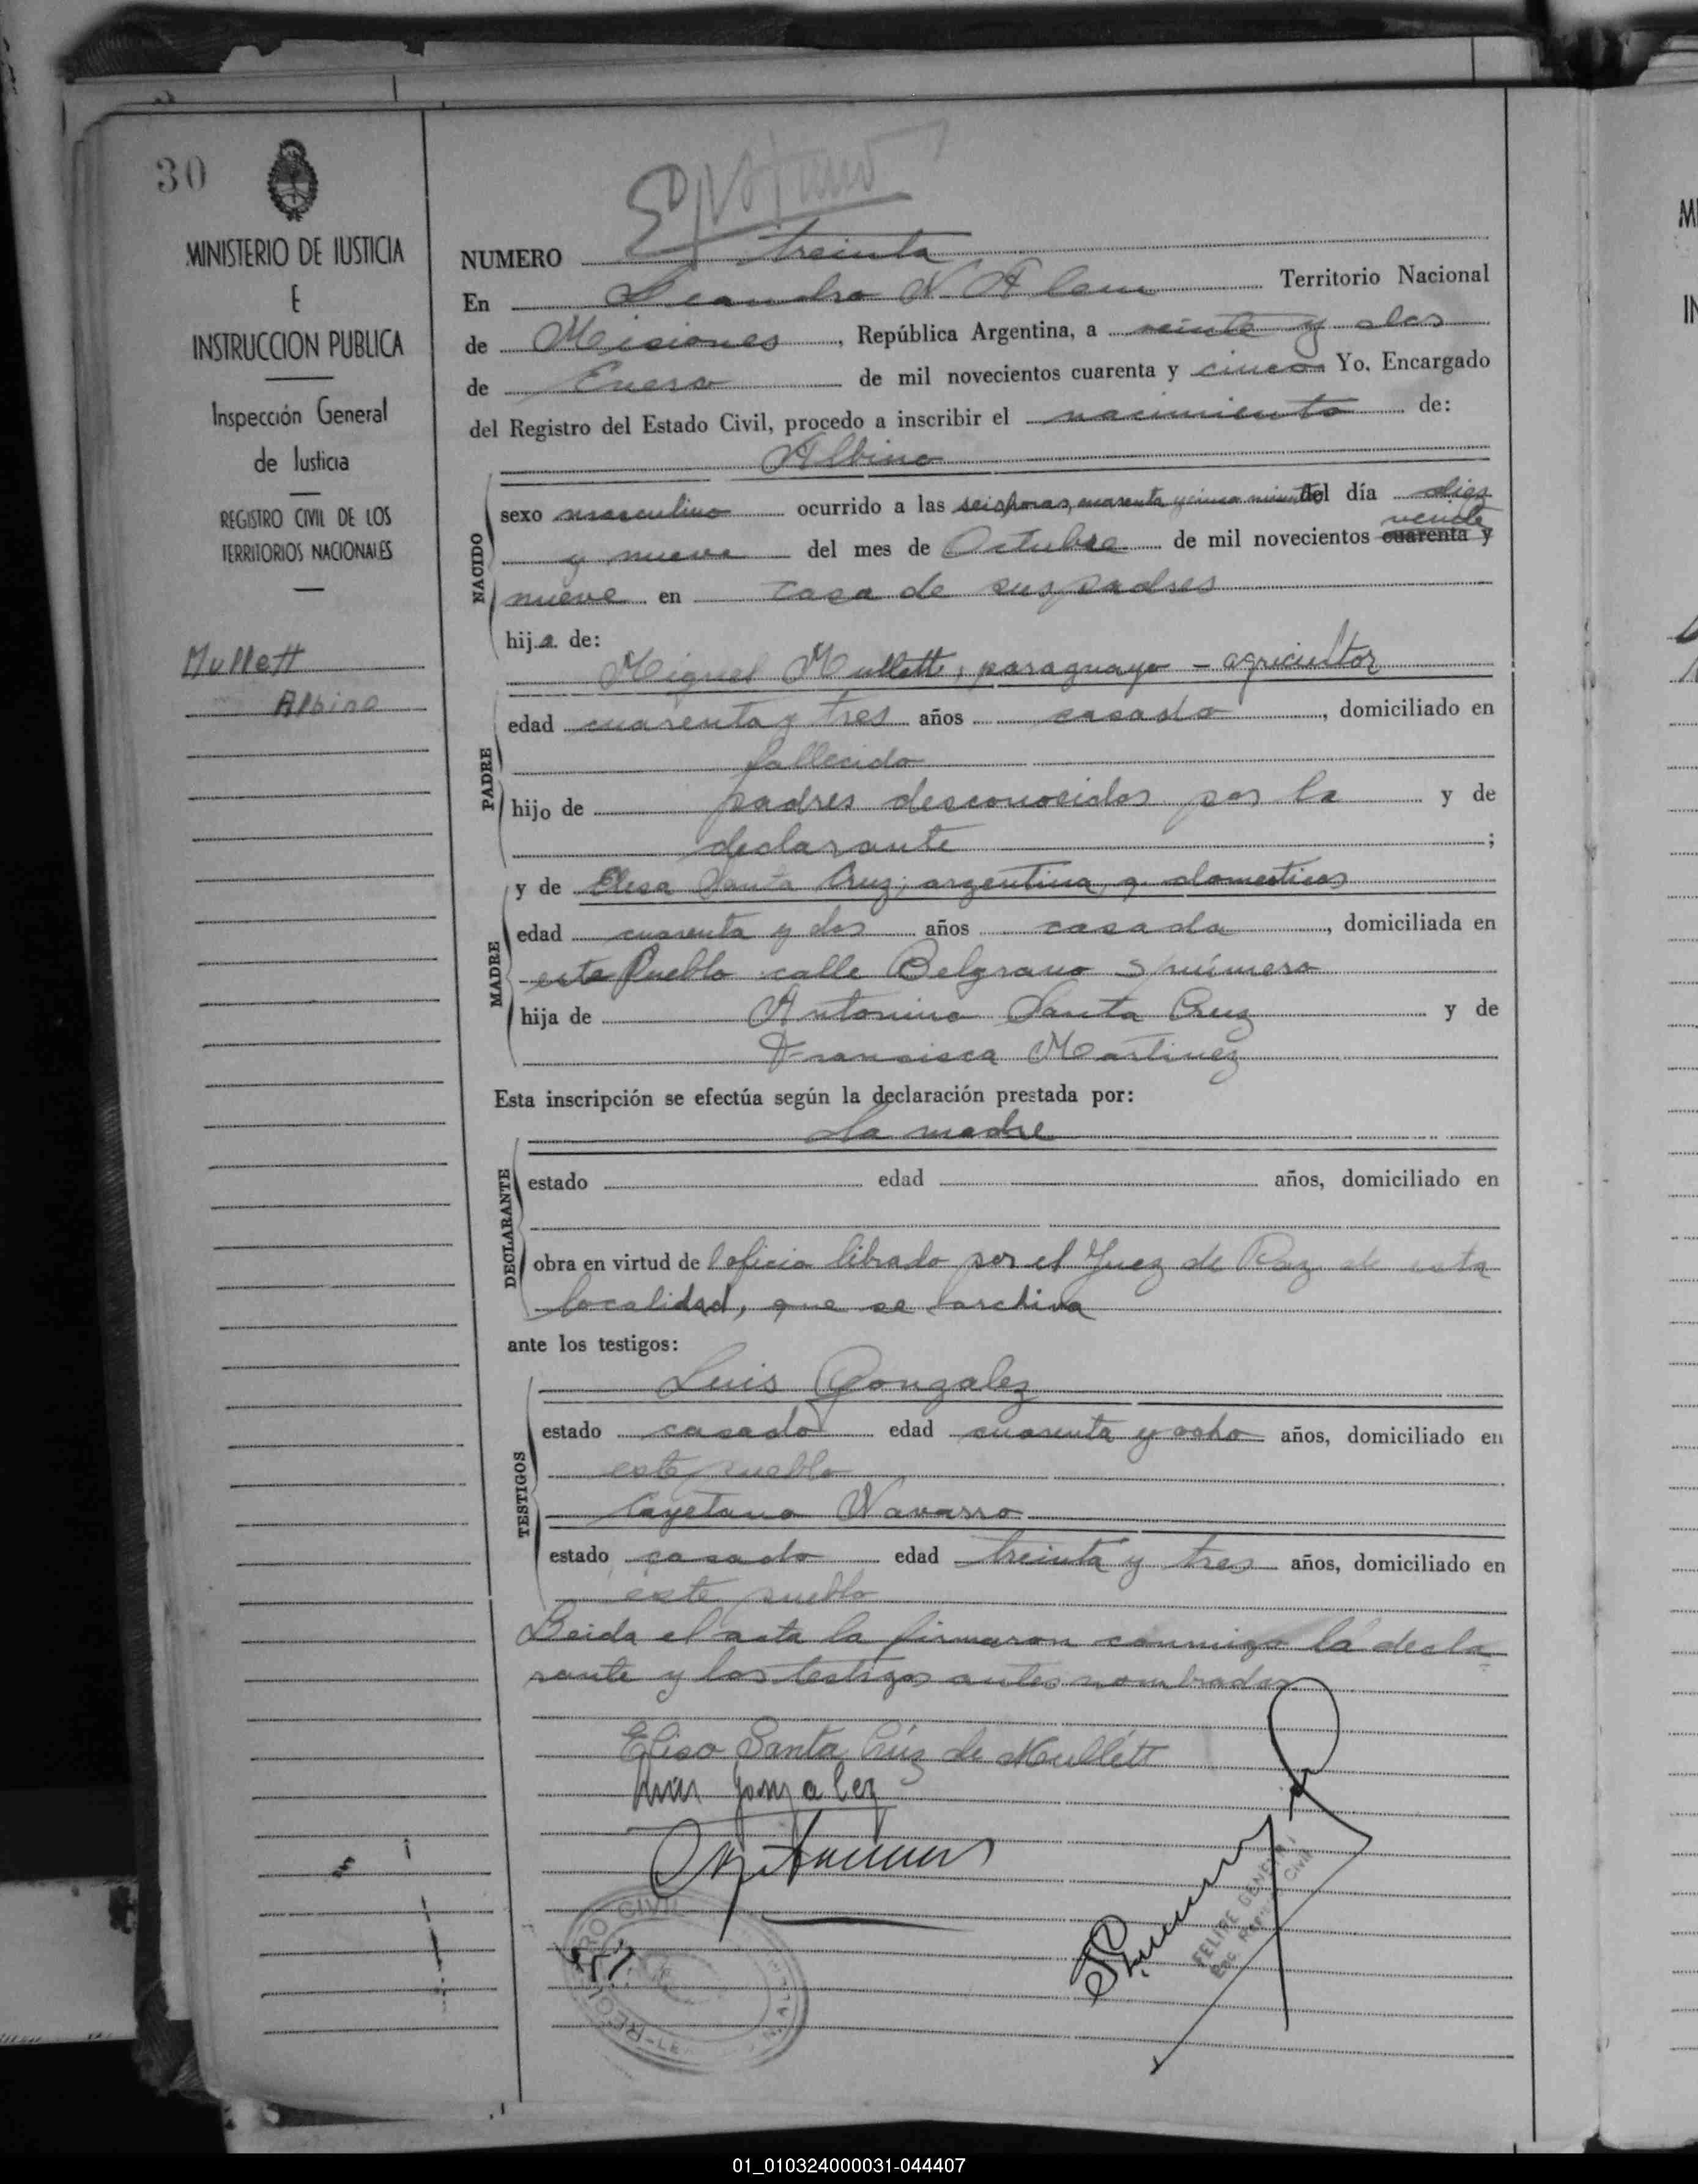 30
MINISTERIO DE JUSTICIA
E
INSTRUCCION PUBLICA
Inspección General
de Justicia
REGISTRO CIVIL DE LOS
TERRITORIOS NACIONALES
Mullett
Albino
NUMERO treinta
En Leandro N. Alem Territorio Nacional
de Misiones, República Argentina, a veinte y dos
de Enero de mil novecientos cuarenta y cinco Yo, Encargado
del Registro del Estado Civil, procedo a inscribir el nacimiento de:
Albino
NACIDO
sexo masculino ocurrido a las seis horas, cuarenta y cinco minutos del día diez
y nueve del mes de Octubre de mil novecientos cuarenta y veinte
nueve en casa de sus padres
hijo de:
Miguel Mullett, paraguayo - agricultor
PADRE
edad cuarenta y tres años casado, domiciliado en
fallecido
hijo de padres desconocidos por la y de
declarante;
MADRE
y de Elisa Santa Cruz, argentina, q. domesticos
edad cuarenta y dos años casada, domiciliada en
este Pueblo calle Belgrano s/número
hija de Antonino Santa Cruz y de
Francisca Martinez
Esta inscripción se efectúa según la declaración prestada por:
La madre
DECLARANTE
estado edad años, domiciliado en
obra en virtud de oficio librado por el Juez de Paz de esta
localidad, que se archiva
ante los testigos:
TESTIGOS
Luis Gonzalez
estado casado edad cuarenta y ocho años, domiciliado en
este pueblo
Cayetano Navarro
estado casado edad treinta y tres años, domiciliado en
este pueblo
Leida el acta la firmaron conmigo la decla
rante y los testigos antes nombrados
Elisa Santa Crúz de Mullétt
Luis Gonzalez
FELIPE GENEYR
Enc. Reg. Civil
REGISTRO CIVIL
01_010324000031-044407